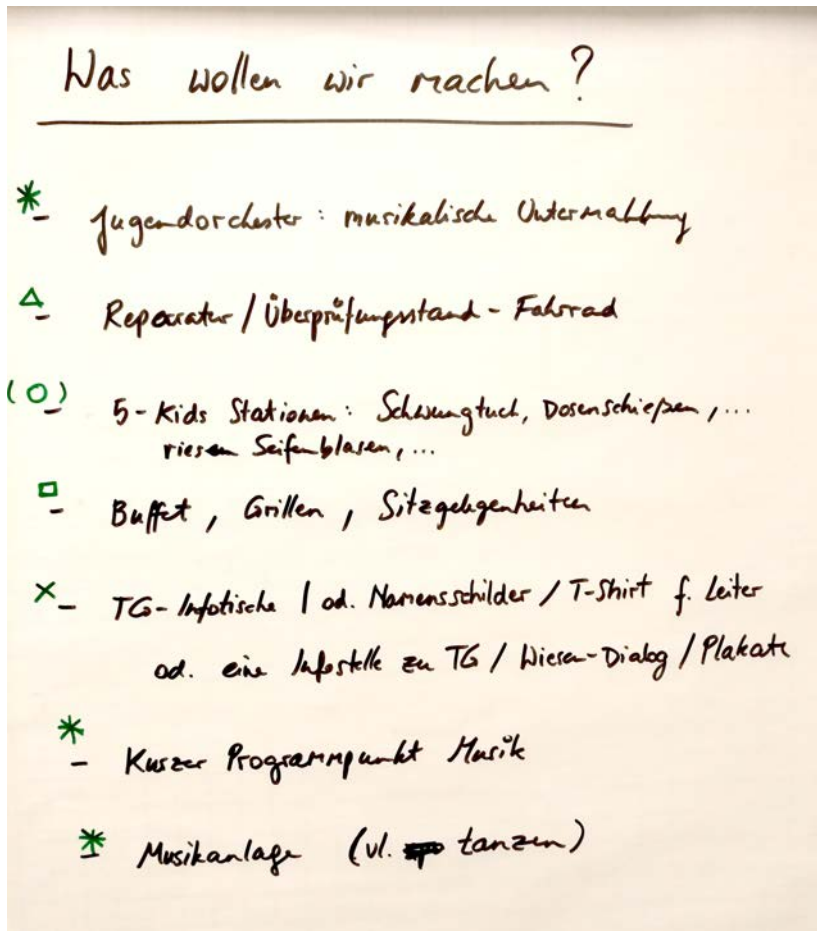 Was wollen wir machen?
* - Jugendorchester: musikalische Untermahlung
△ - Reparatur / Überprüfungsstand - Fahrrad
(○) - 5-Kids Stationen: Schwungtuch, Dosenschießen, ...
riesen Seifenblasen, ...
□ - Buffet, Grillen, Sitzgelegenheiten
× - TG-Infotische / od. Namensschilder / T-Shirt f. Leiter
od. eine Infostelle zu TG / Wiesen-Dialog / Plakate
* - Kurzer Programmpunkt Musik
* - Musikanlage (vl. tanzen)